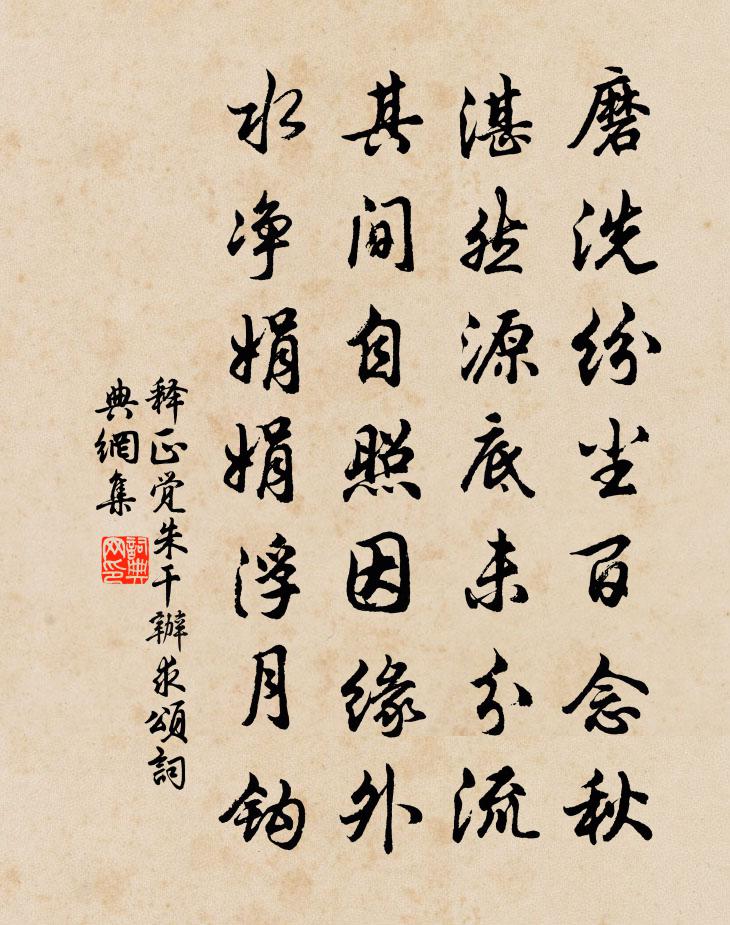 磨洗纷尘百念秋
湛然源底未分流
其间自照因缘外
水净娟娟浮月钩
释正觉朱干辦求頌詞
典網集
詞典
网印